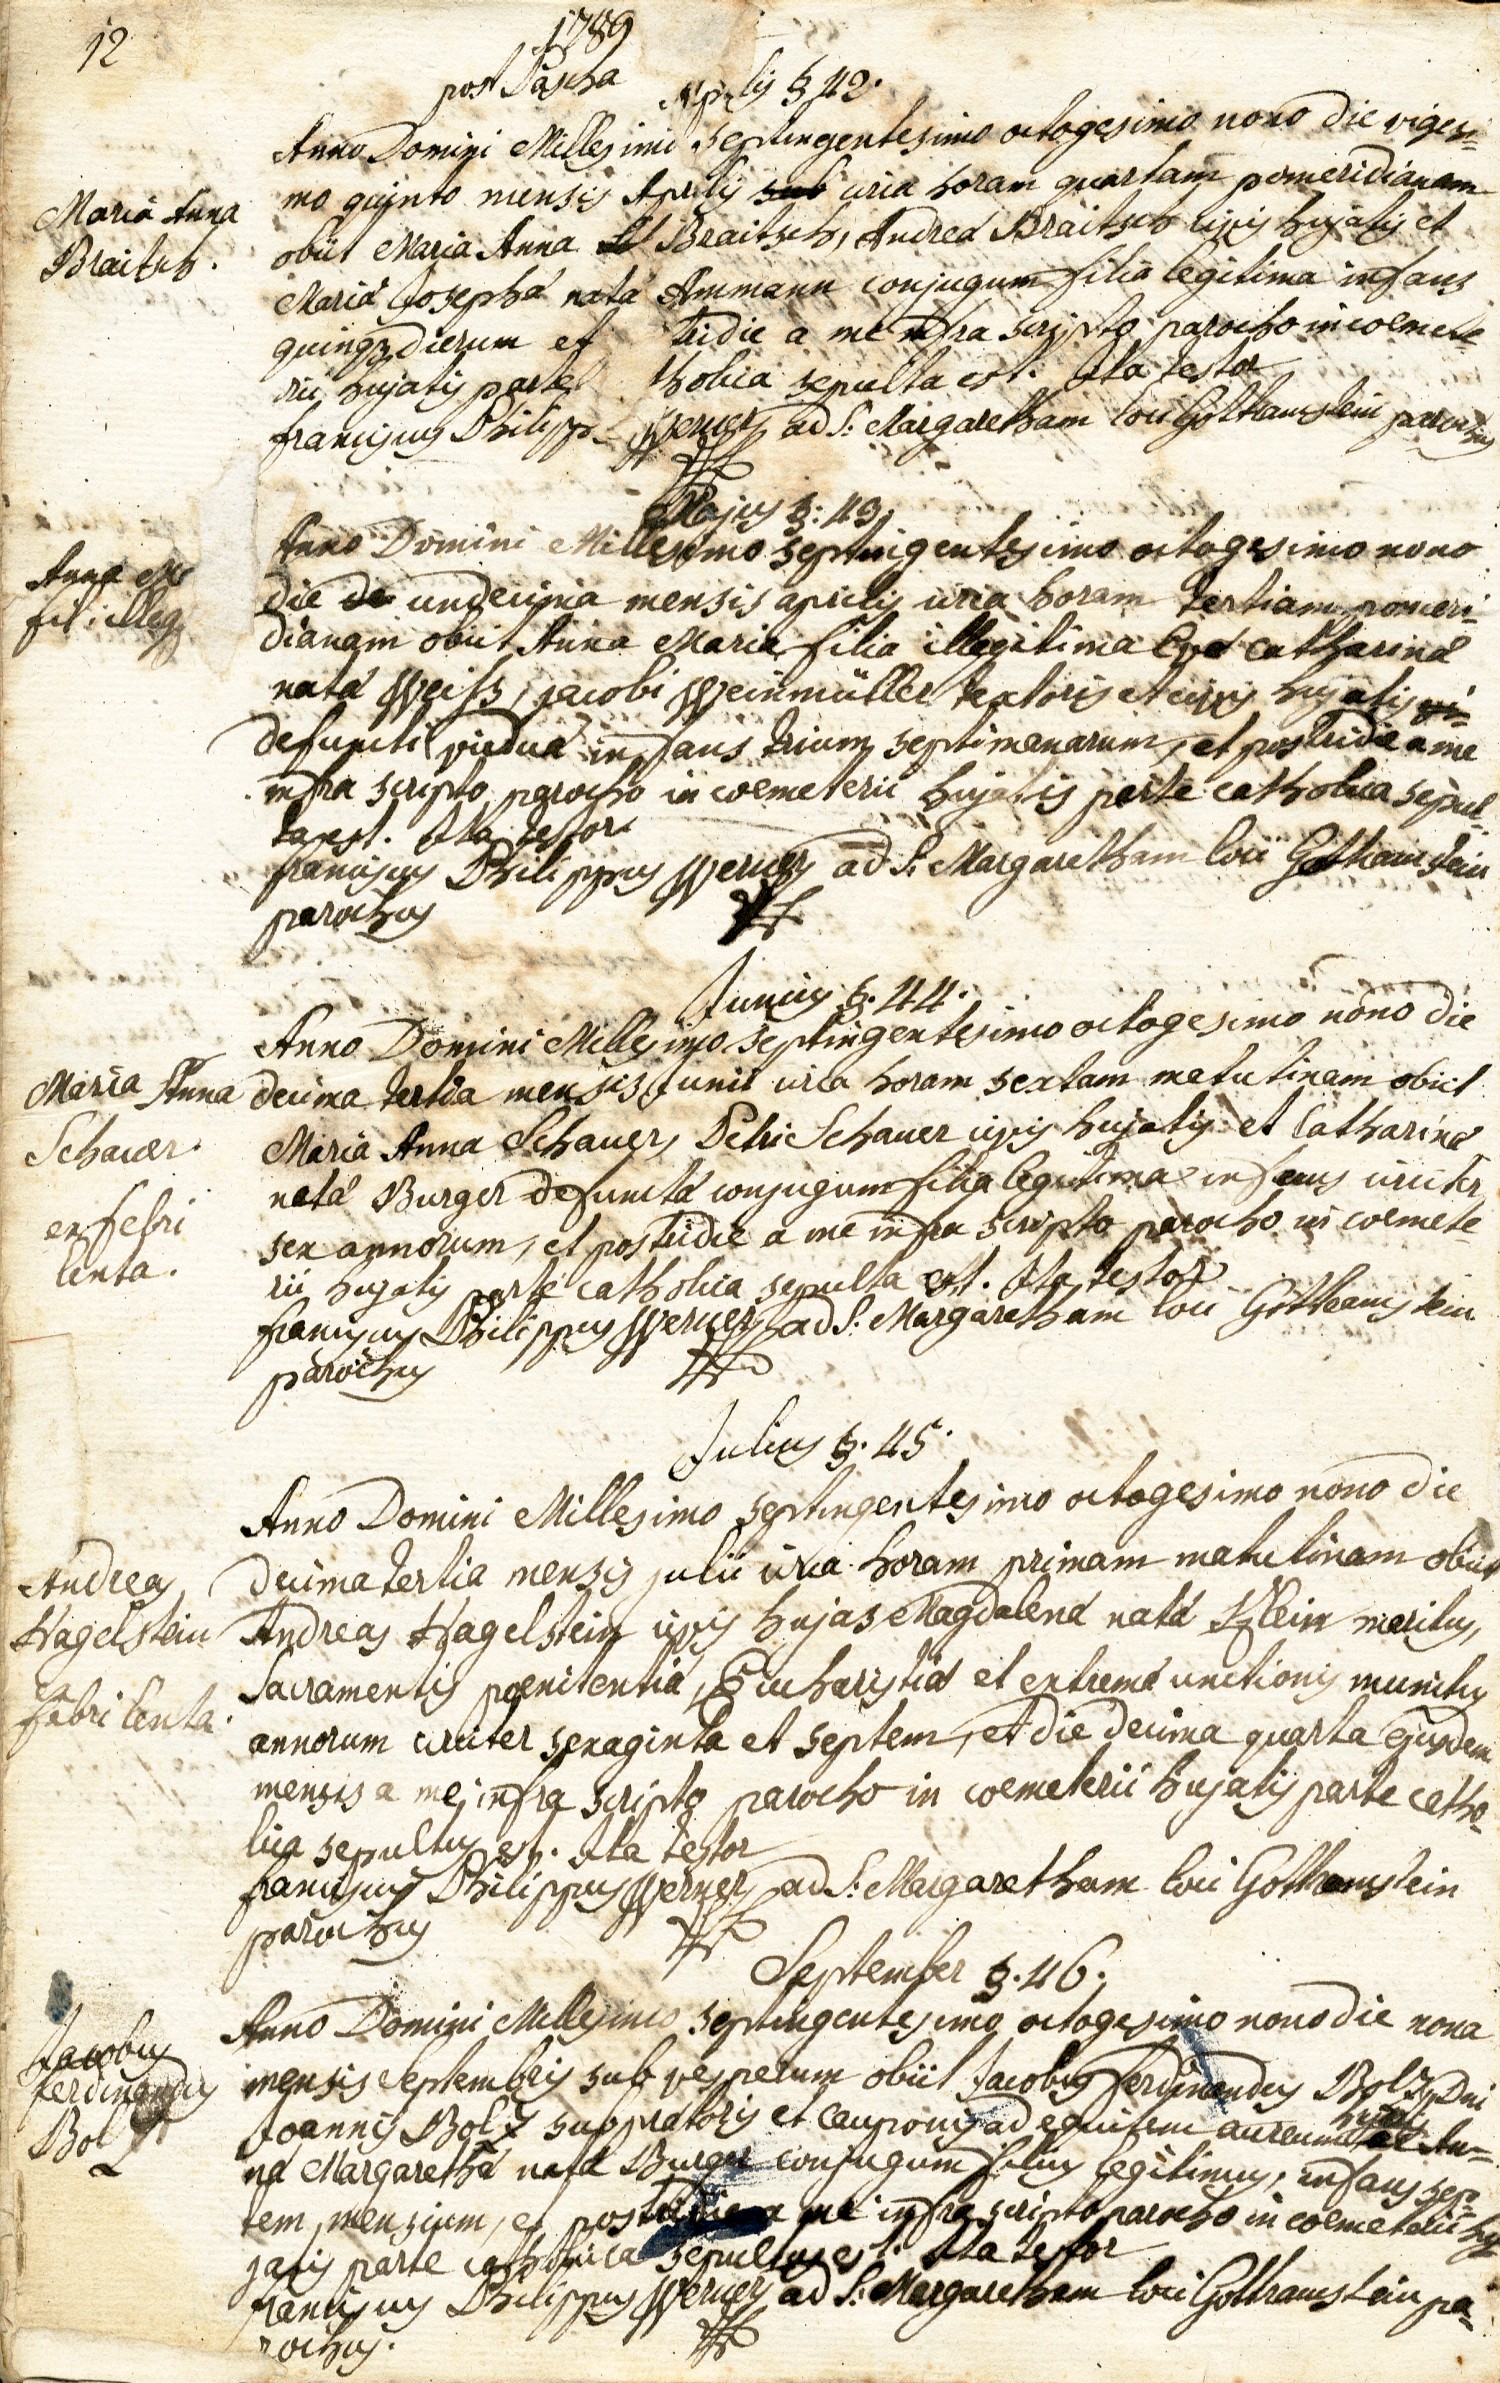 12
1789
post Pascha
Aprilis §. 42.
Anno Domini Millesimo septingentesimo octogesimo nono die vigesi-
mo quinto mensis Aprilis circa horam quartam pomeridianam
Maria Anna
Braitsch.
obiit Maria Anna Braitsch, Andreä Braitsch civis hujatis et
Mariä Josephä natä Ammann conjugum filia legitima infans
quinq dierum et tridie a me infra scripto parocho in coemete-
rii hujatis parte tholica sepulta est. Ita testor
franciscus Philipp Werner ad S: Margaretham loci Gottramstein parochus
Majus §: 43.
Anna M
fil: illeg
Anno Domini Millesimo septingentesimo octogesimo nono
die de undecima mensis aprilis circa horam tertiam pomeri-
dianam obiit Anna Maria filia illegitima Evä Catharinä
natä Weiss, jacobi Weinmüller textoris et civis hujatis vi-
defuncti viduä infans trium septimanarum, et postridie a me
infra scripto parocho in coemeterii hujatis parte catholica sepul-
ta est. Ita testor
franciscus Philippus Werner ad S: Margaretham loci Gottramstein
parochus
Junius §. 44.
Anno Domini Millesimo septingentesimo octogesimo nono die
Maria Anna
Schauer.
ex febri
lenta.
decima tertia mensis Junii circa horam sextam matutinam obiit
Maria Anna Schauer, Petri Schauer civis hujatis et Catharinä
natä Burger defunctä conjugum filia legitima infans circiter
sex annorum, et postridie a me infra scripto parocho in coemete-
rii hujatis parte catholica sepulta est. Ita testor
franciscus Philippus Werner ad S: Margaretham loci Gottramstein
parochus
Julius §. 45.
Anno Domini Millesimo septingentesimo octogesimo nono die
Andreas
Hagelstein
febri lenta.
decima tertia mensis julii circa horam primam matutinam obiit
Andreas Hagelstein civis hujas Magdalenä natä Klein maritus,
Sacramentis poenitentiä, Eucharistiä et extremä unctionis munitus
annorum circiter sexaginta et septem, et die decima quarta ejusdem
mensis a me infra scripto parocho in coemeterii hujatis parte catho-
lica sepultus est. Ita testor
franciscus Philippus Werner ad S: Margaretham loci Gottramstein
parochus
September §. 46.
Anno Domini Millesimo septingentesimo octogesimo nono die nona
Jacobus
ferdinandus
Bolz
mensis Septembris sub vesperum obiit Jacobus ferdinandus Bolz, Dni
Joannis Bolz supratoris et cauponis ad equitem aureum hujatis ac An-
nä Margarethä natä Burger conjugum filius legitimus, infans sep-
tem mensium, et postridie a me infra scripto parocho in coemeterii hu-
jatis parte catholica sepultus est. Ita testor
franciscus Philippus Werner ad S: Margaretham loci Gottramstein pa-
rochus.